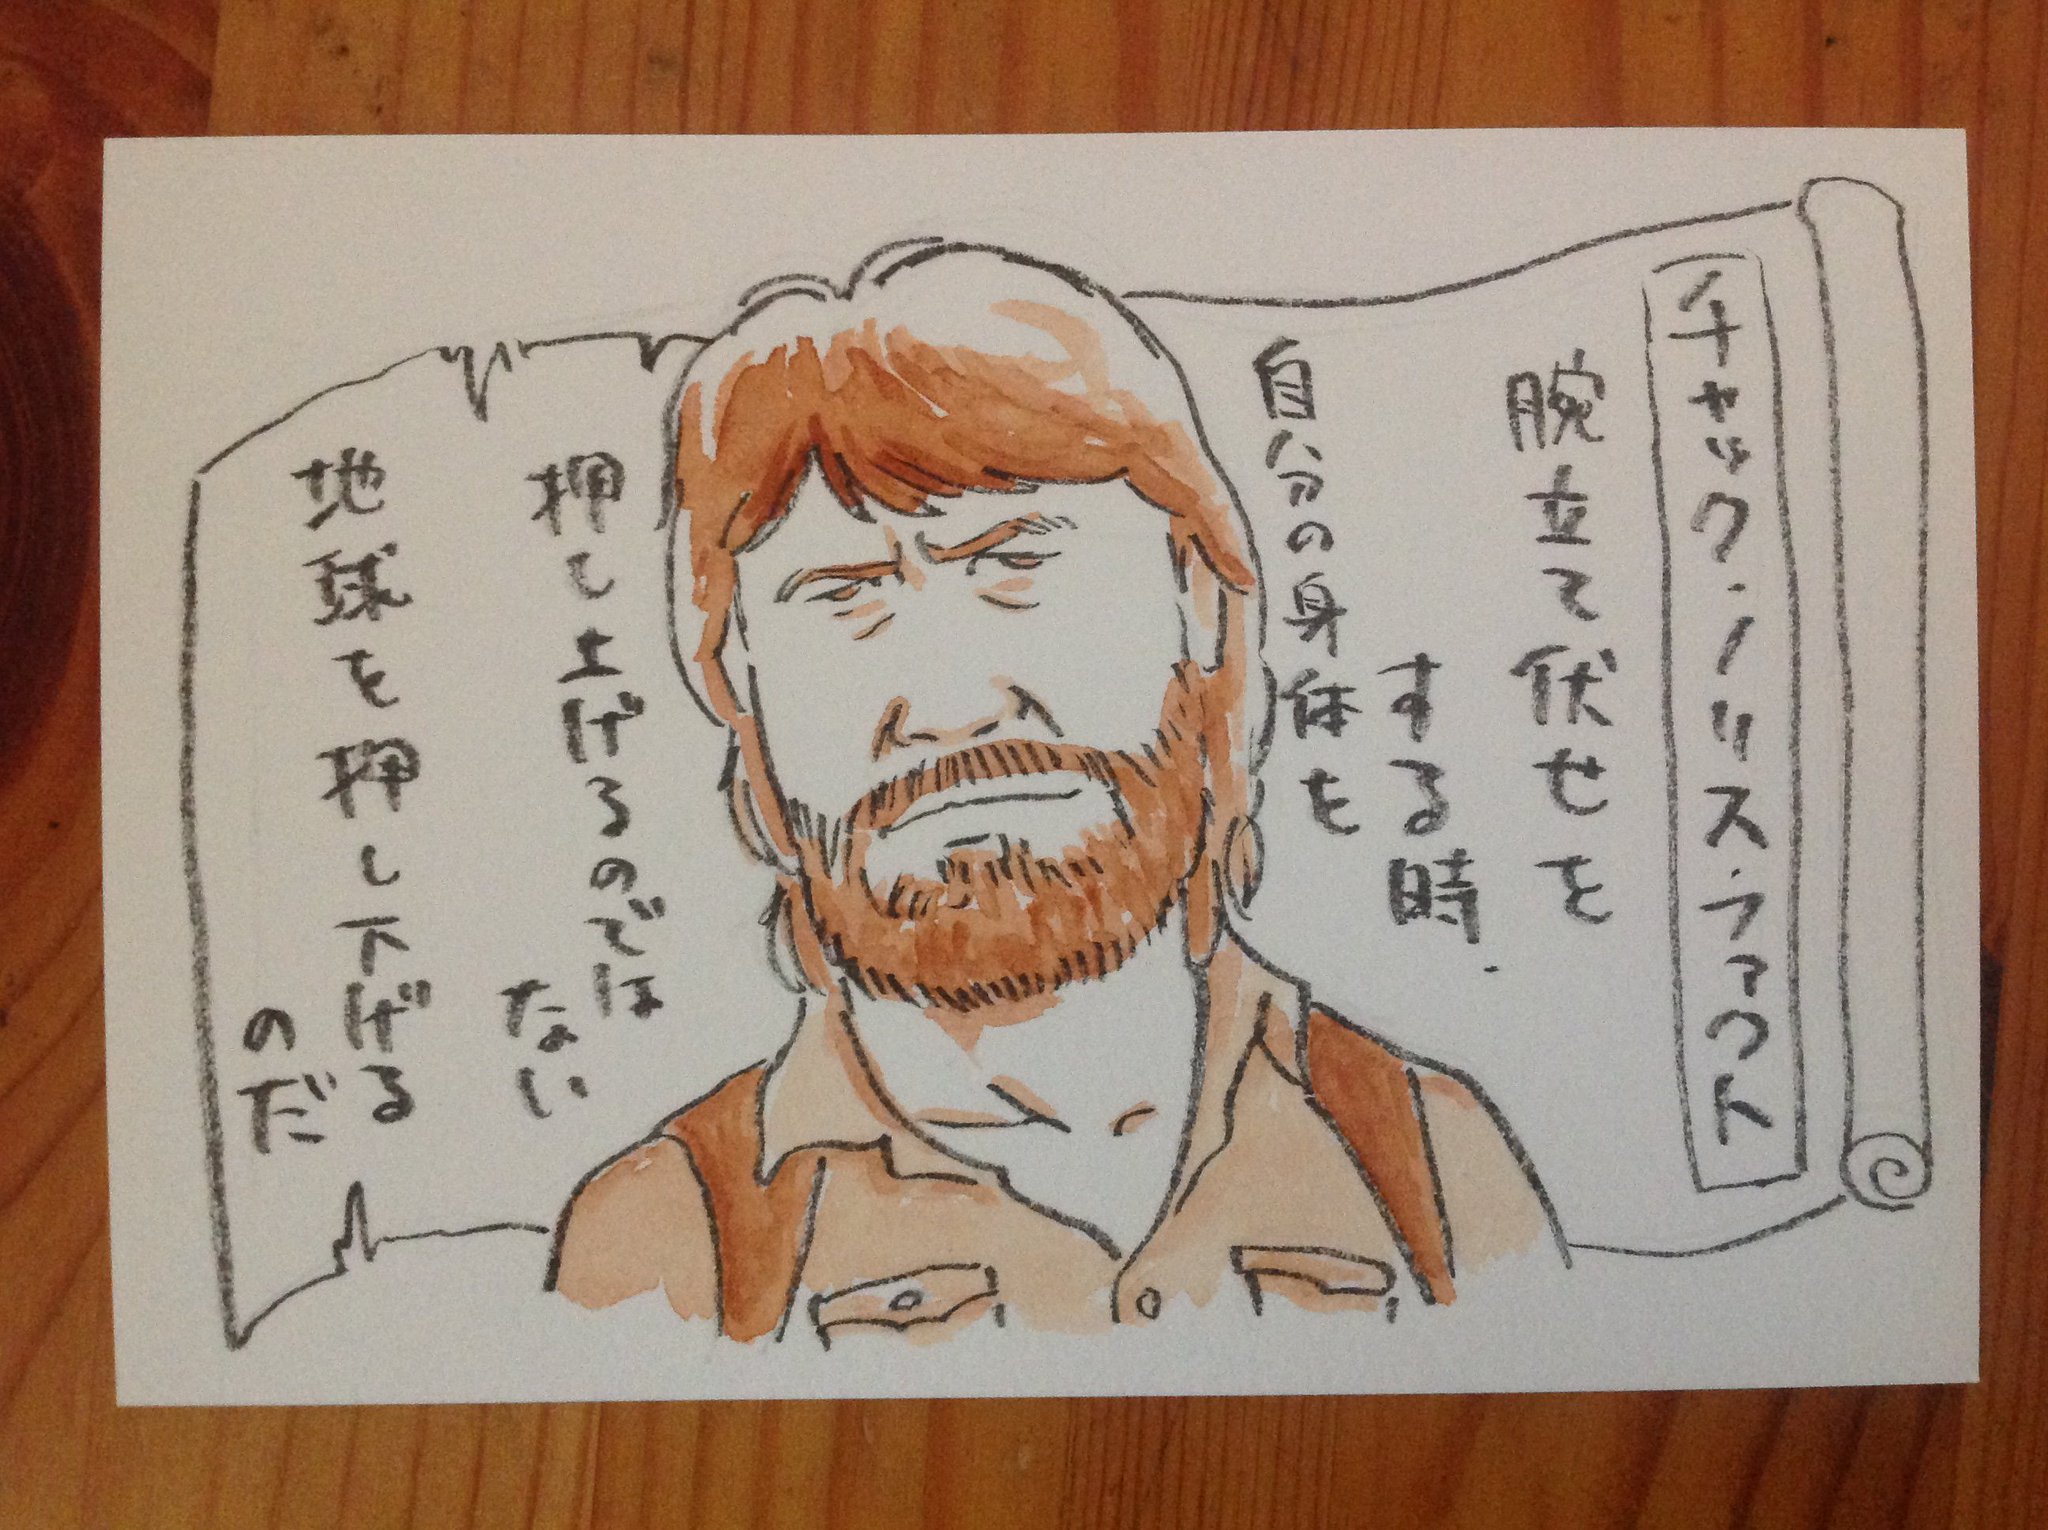 チャック・ノリス・ファクト
腕立て伏せを
する時.
自分の身体を
押し上げるのでは
ない
地球を押し下げる
のだ